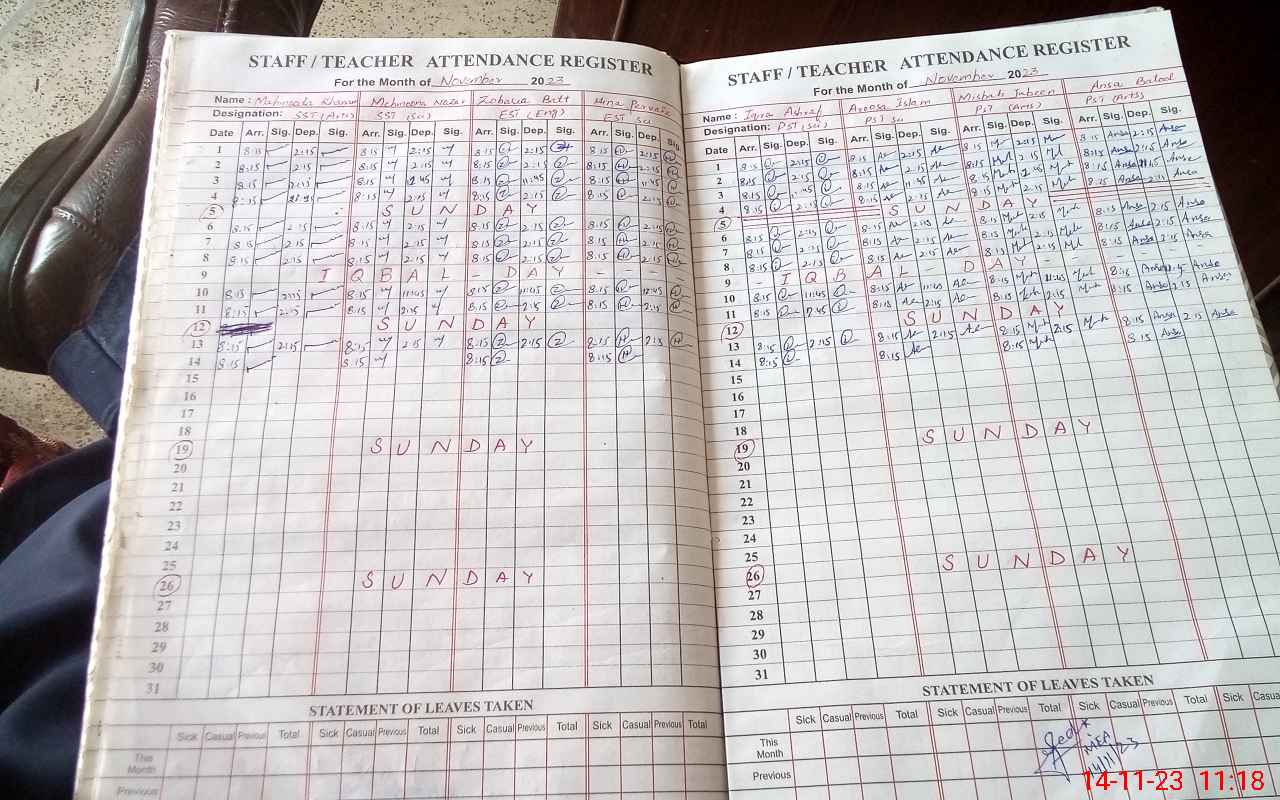 STAFF / TEACHER ATTENDANCE REGISTER
For the Month of November 2023
Name : Mahmooda Khanam Mehmoona Nazar Zobaria Batt Hina Parvaiz
Designation: SST (Arts) SST (sci) EST (Eng) EST sci
Date Arr. Sig. Dep. Sig. Arr. Sig. Dep. Sig. Arr. Sig. Dep. Sig. Arr. Sig. Dep. Sig.
1 8:15 2:15 8:15 2:15 8:15 2:15 8:15 2:15
2 8:15 2:15 8:15 2:15 8:15 2:15 8:15 2:15
3 8:15 8:15 8:15 11:45 8:15 11:45
4 8:15 8:15 2:15 8:15 2:15 8:15 2:15
5 SUNDAY
6 8:15 2:15 8:15 2:15 8:15 2:15 8:15 2:15
7 8:15 2:15 8:15 2:15 8:15 2:15 8:15 2:15
8 8:15 2:15 8:15 2:15 8:15 2:15 8:15 2:15
9 IQBAL - DAY
10 8:15 8:15 11:45 8:15 11:45 8:15 11:45
11 8:15 2:15 8:15 2:15 8:15 2:15 8:15 2:15
12 SUNDAY
13 8:15 2:15 8:15 2:15 8:15 2:15 8:15 2:15
14 8:15 8:15 8:15 8:15
15
16
17
18
19 SUNDAY
20
21
22
23
24
25
26 SUNDAY
27
28
29
30
31
STATEMENT OF LEAVES TAKEN
Sick Casual Previous Total Sick Casual Previous Total Sick Casual Previous Total Sick Casual Previous Total
This Month
Previous
STAFF / TEACHER ATTENDANCE REGISTER
For the Month of November 2023
Name : Iqra Ashraf Areosa Islam Misbah Jabeen Ansa Batool
Designation: PST (Sci) PST sci PST (Arts) PST (Arts)
Date Arr. Sig. Dep. Sig. Arr. Sig. Dep. Sig. Arr. Sig. Dep. Sig. Arr. Sig. Dep. Sig.
1 8:15 2:15 8:15 2:15 8:15 2:15 8:15 Ansa 2:15 Ansa
2 8:15 2:15 8:15 2:15 8:15 8:15 Ansa Ansa
3 8:15 8:15 11:45 8:15 2:15 8:15 Ansa 2:15 Ansa
4 8:15 2:15
5 SUNDAY
6 8:15 2:15 8:15 2:15 8:15 2:15 8:15 Ansa 2:15 Ansa
7 8:15 2:15 8:15 2:15 8:15 2:15 8:15 2:15 Ansa
8 8:15 2:15 8:15 2:15 8:15 2:15 8:15 Ansa 2:15 Ansa
9 - IQBAL - DAY - - -
10 8:15 8:15 8:15 11:45 8:15 Ansa
11 8:15 8:15 2:15 8:15 2:15 8:15 Ansa 2:15 Ansa
12 SUNDAY
13 8:15 2:15 8:15 2:15 8:15 2:15 8:15 Ansa 2:15 Ansa
14 8:15 8:15 8:15 8:15 Ansa
15
16
17
18
19 SUNDAY
20
21
22
23
24
25
26 SUNDAY
27
28
29
30
31
STATEMENT OF LEAVES TAKEN
Sick Casual Previous Total Sick Casual Previous Total Sick Casual Previous Total Sick Casual
This Month
Previous
MEA
14/11/23
14-11-23 11:18